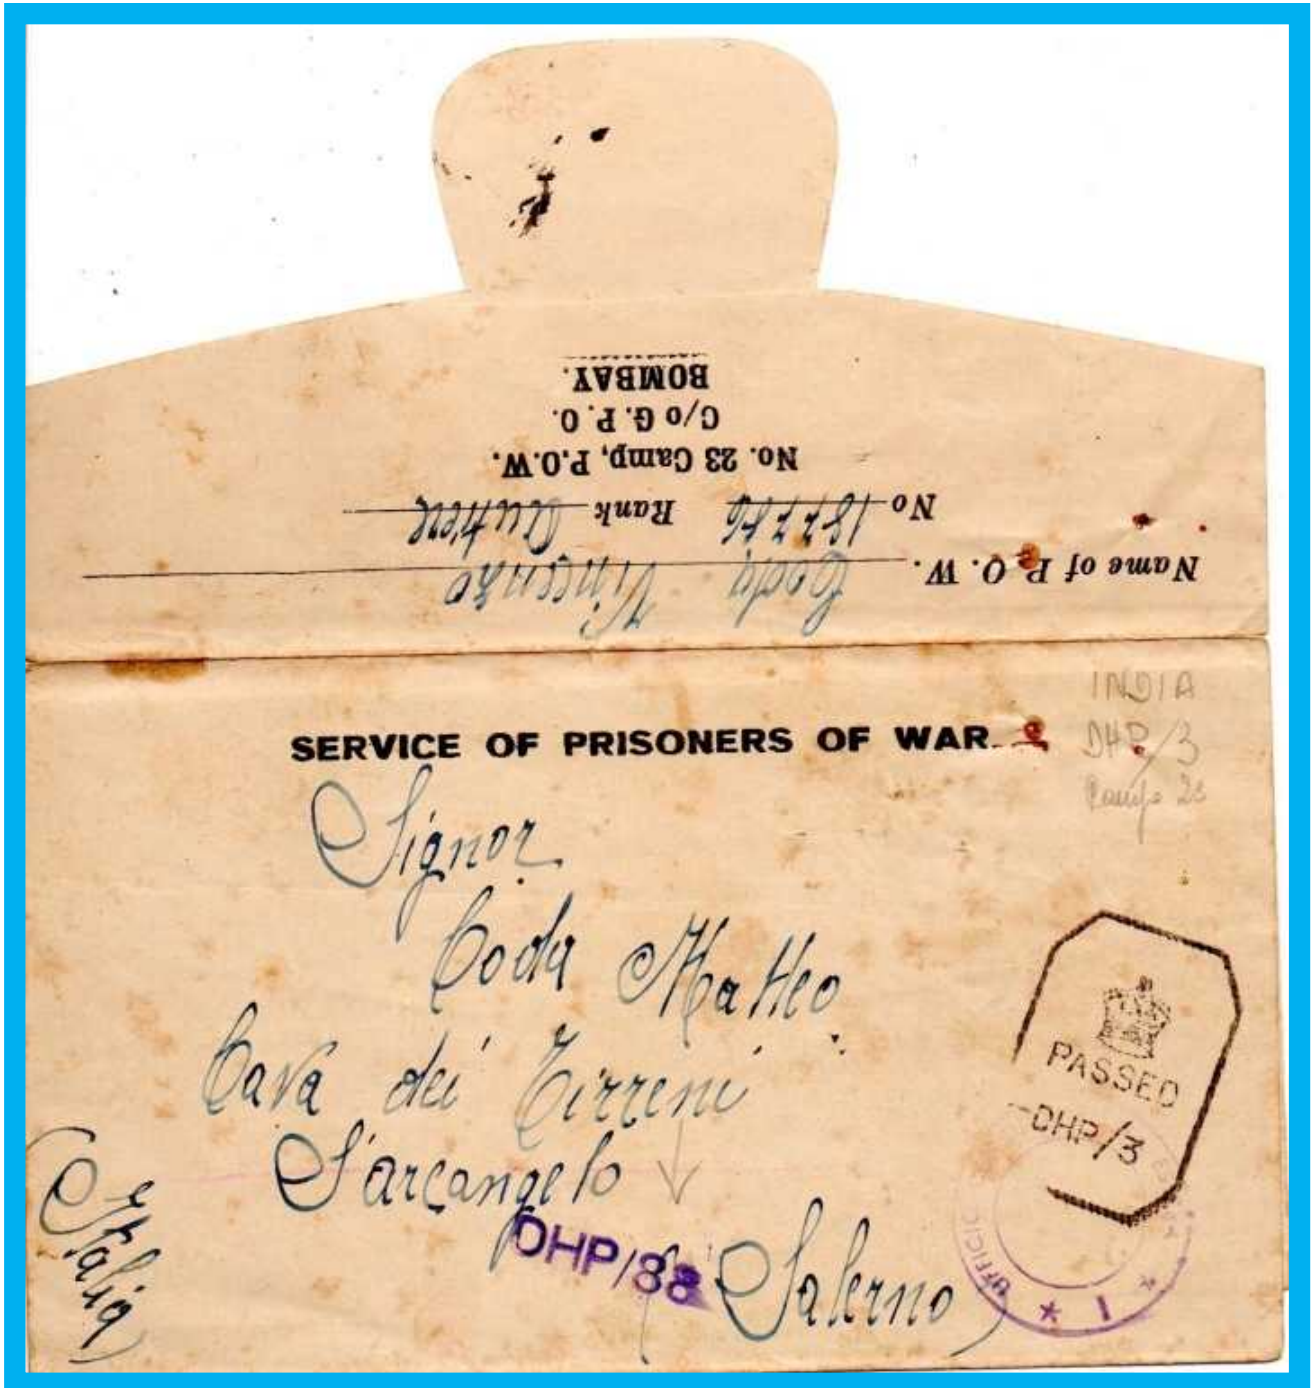 Name of P. O. W. Coda Vincenzo
No 187786 Rank
No. 23 Camp, P.O.W.
C/o G. P. O.
BOMBAY.
SERVICE OF PRISONERS OF WAR.
INDIA
DHP/3
Camp 23
Signor
Coda Matteo
Cava dei Tirreni
S'arcangelo
(Salerno)
(Italia)
PASSED
DHP/3
DHP/88
UFFICIO
* 1 *